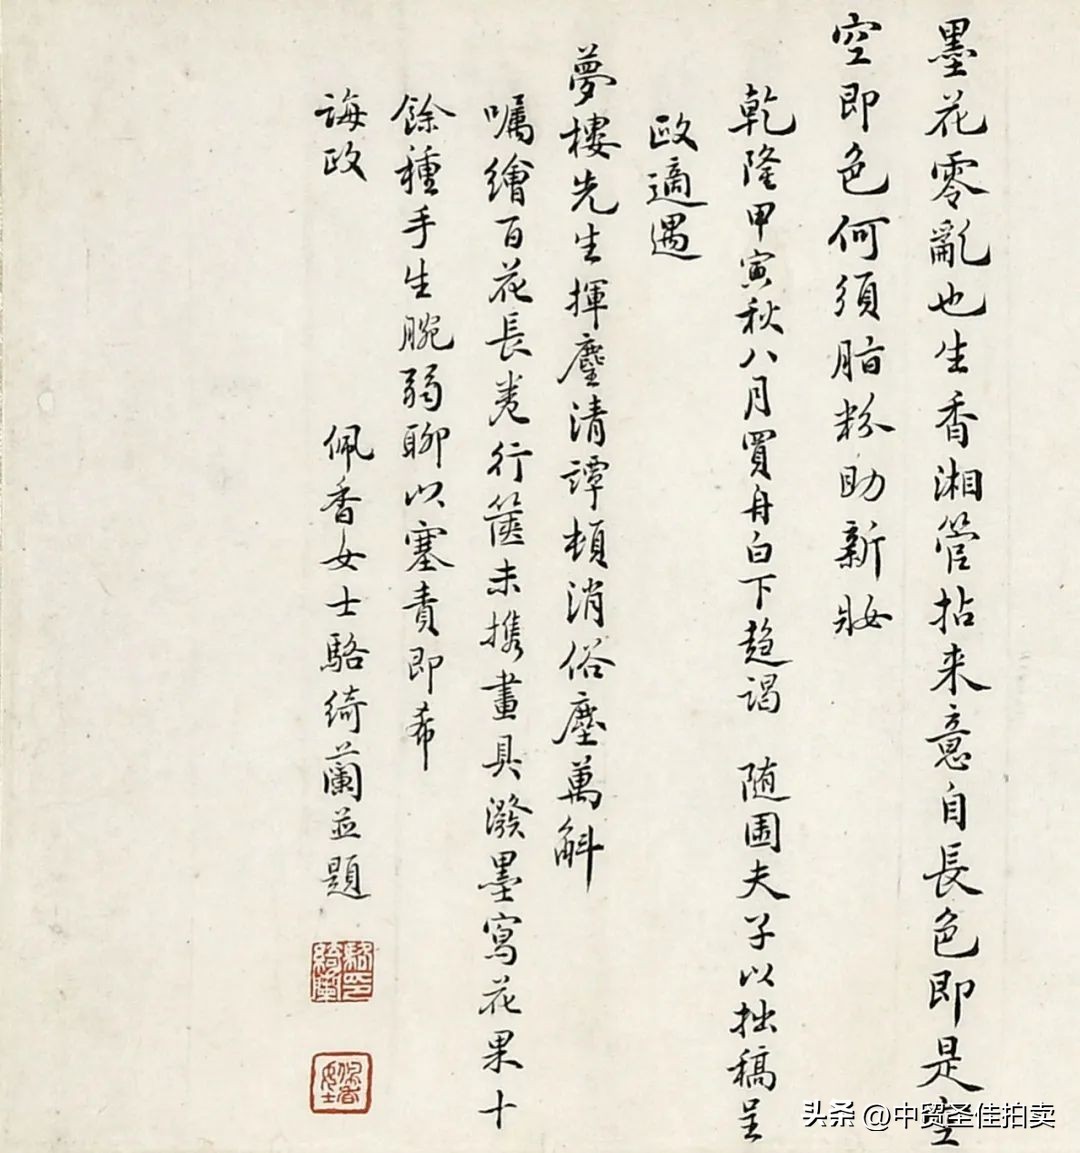 墨花零亂也生香湘管拈来意自長色即是空
空即色何須脂粉助新妝
乾隆甲寅秋八月買舟白下趋謁 随園夫子以拙稿呈
政適遇
夢樓先生揮麈清譚頓消俗塵萬斛
嘱繪百花長卷行篋未携畫具潑墨寫花果十
餘種手生腕弱聊以塞責即希
誨政
佩香女士駱綺蘭並題
駱綺蘭印
佩香女士
头条 @中贸圣佳拍卖